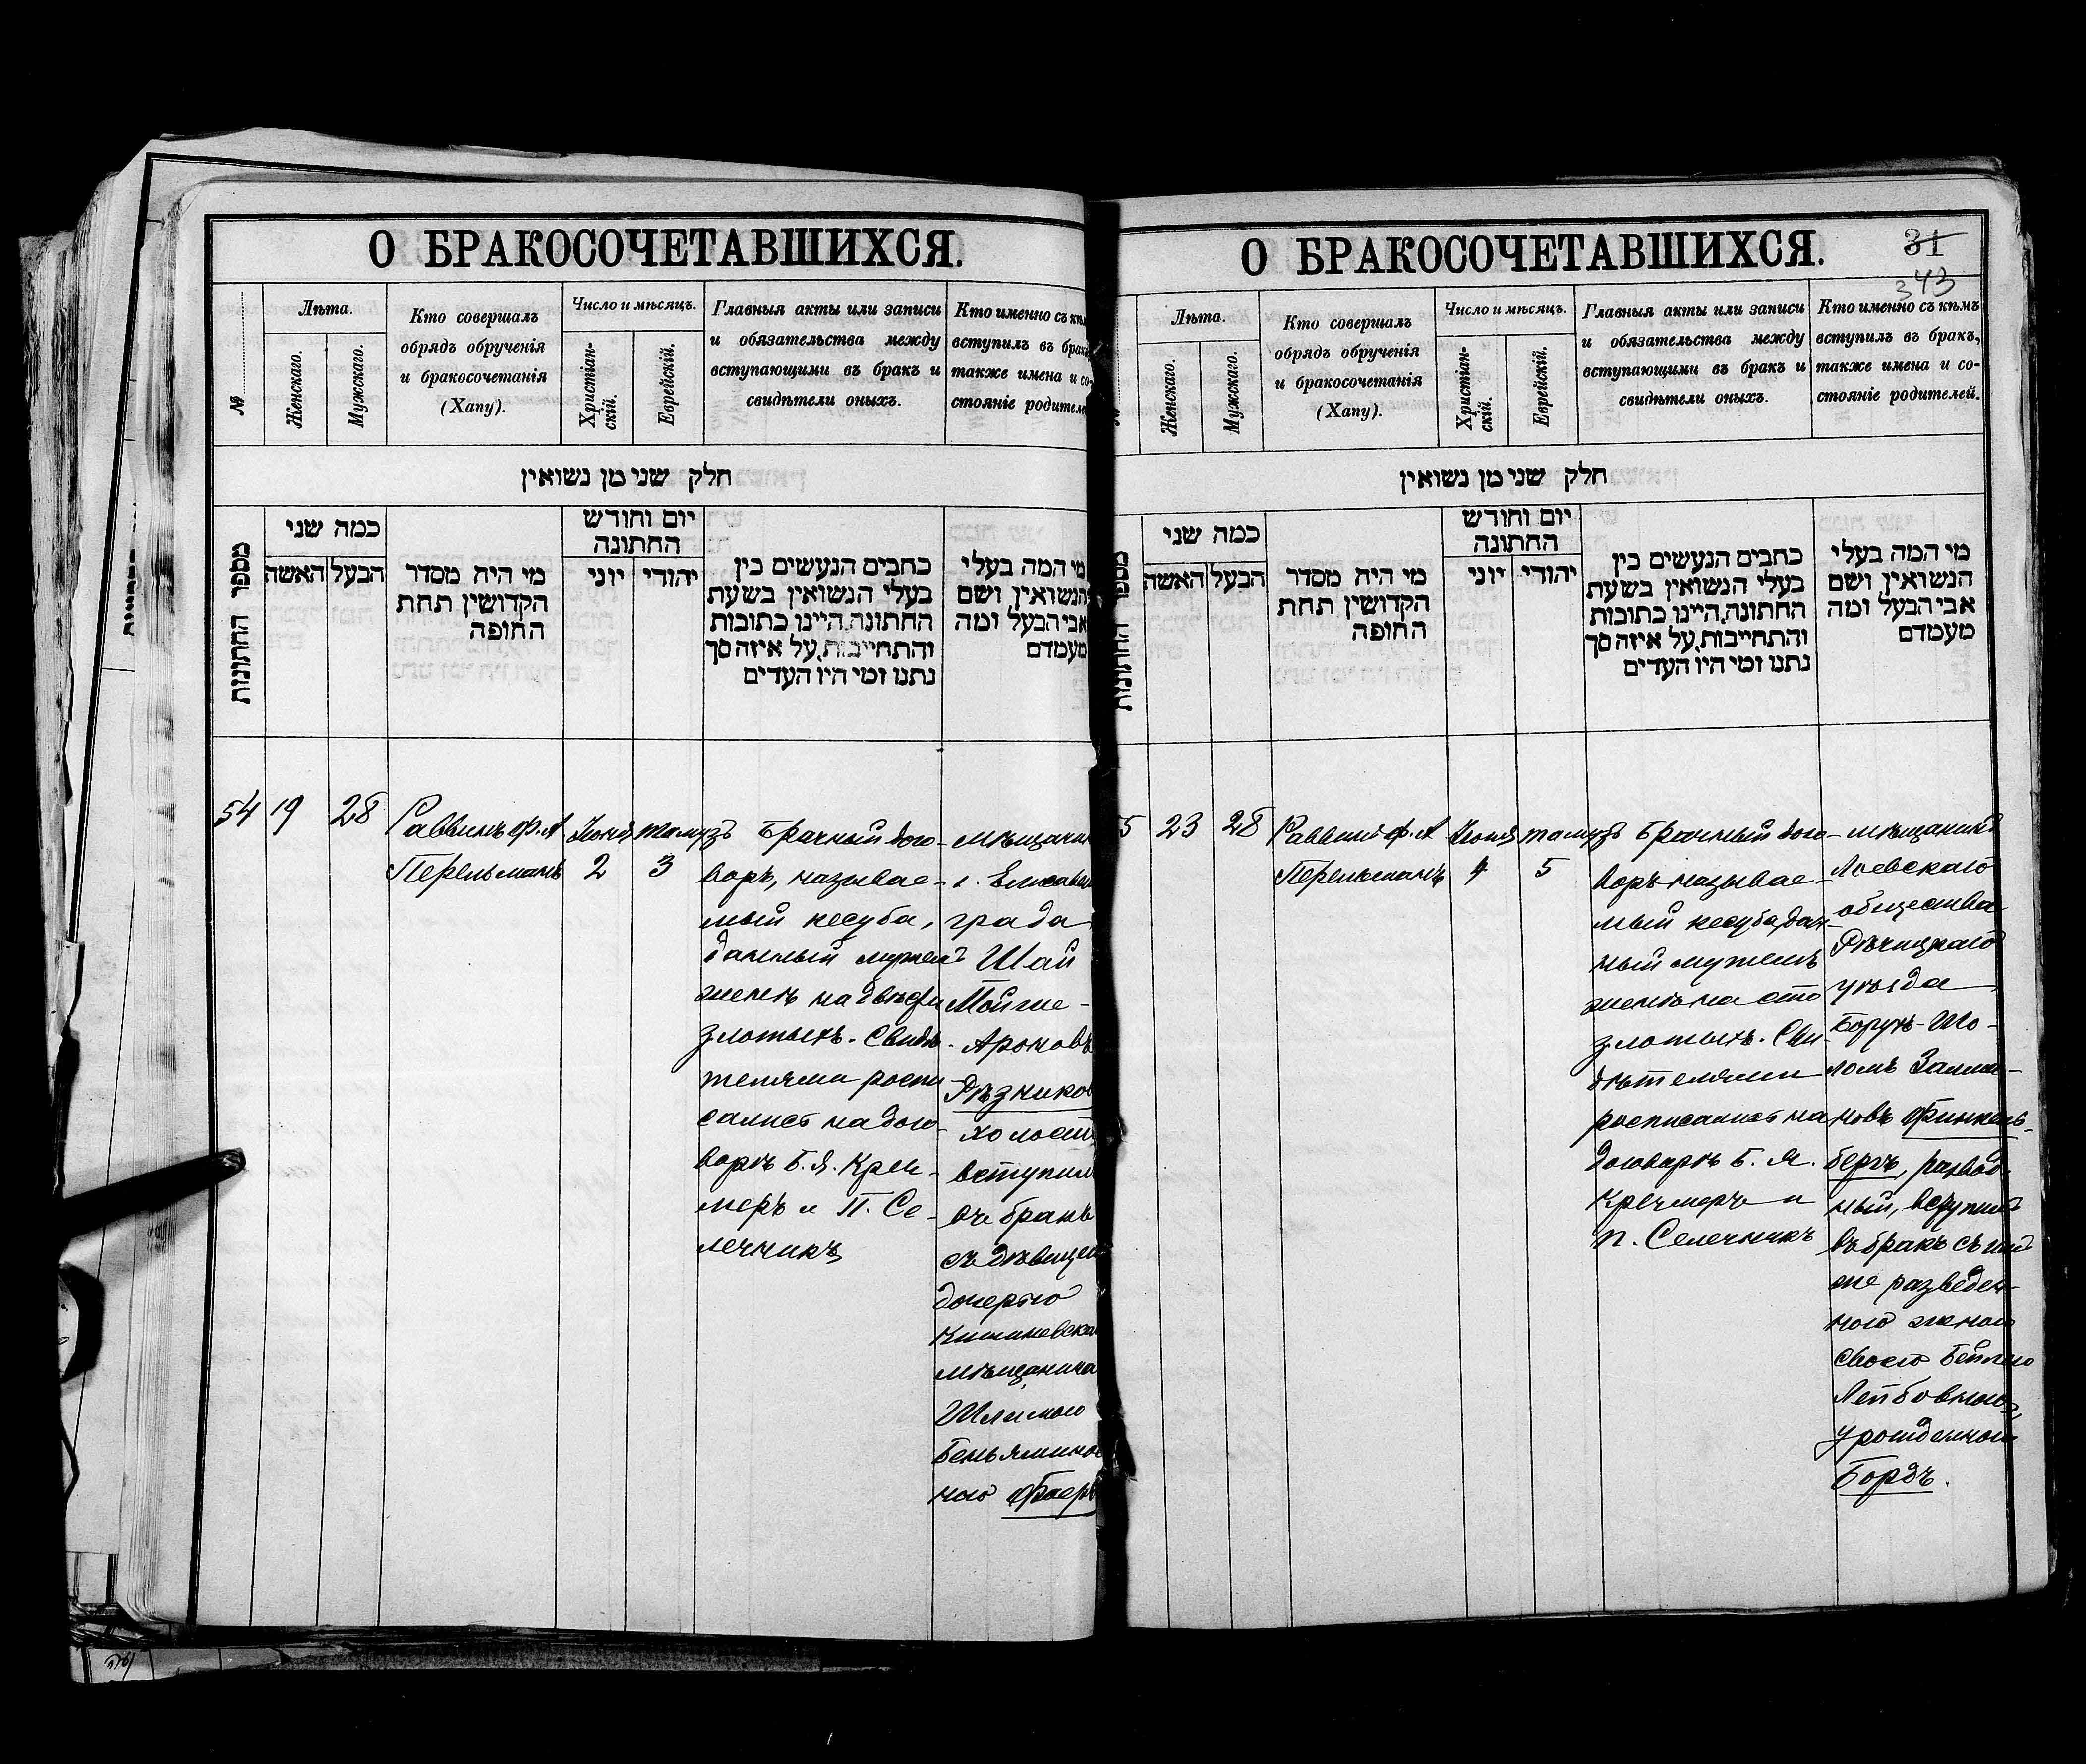 О БРАКОСОЧЕТАВШИХСЯ.
№
Лѣта.
Женскаго.
Мужскаго.
Кто совершалъ
обрядъ обрученія
и бракосочетанія
(Хапу).
Число и мѣсяцъ.
Христіан-
скій.
Еврейскій.
Главныя акты или записи
и обязательства между
вступающими въ бракъ и
свидѣтели оныхъ.
Кто именно съ кѣм
вступилъ въ брак
также имена и со-
стояніе родителе
חלק שני מן נשואין
מספר החתונות
כמה שני
האשה
הבעל
מי היה מסדר
הקדושין תחת
החופה
יום וחודש
החתונה
יוני
יהודי
כתבים הנעשים בין
בעלי הנשואין בשעת
החתונה, היינו כתובות
והתחייבות, על איזה סך
נתנו ומי היו העדים
מי המה בעלי
הנשואין ושם
אבי הבעל ומה
מעמדם
54
19
28
Раввинъ Ф. А.
Перельманъ
Іюня
2
тамузъ
3
Брачный дого-
воръ, называе-
мый кесуба,
данный мужемъ
женѣ на двѣсти
злотыхъ. Свидѣ-
телями роспи
сались на дого-
ворѣ Б. Я. Кре
меръ и П. Се-
лечникъ
мѣщанин
г. Елисавет
града
Шай
Мойше -
Ароновъ
Рѣзников
холост
вступил
въ бракъ
съ дѣвицею
дочерью
Кишиневска
мѣщанина
Шлимою
Беньямино
ною Фаер
О БРАКОСОЧЕТАВШИХСЯ.
31
343
Лѣта.
Женскаго.
Мужскаго.
Кто совершалъ
обрядъ обрученія
и бракосочетанія
(Хапу).
Число и мѣсяцъ.
Христіан-
скій.
Еврейскій.
Главныя акты или записи
и обязательства между
вступающими въ бракъ и
свидѣтели оныхъ.
Кто именно съ кѣмъ
вступилъ въ бракъ,
также имена и со-
стояніе родителей.
חלק שני מן נשואין
כמה שני
האשה
הבעל
מי היה מסדר
הקדושין תחת
החופה
יום וחודש
החתונה
יוני
יהודי
כתבים הנעשים בין
בעלי הנשואין בשעת
החתונה, היינו כתובות
והתחייבות, על איזה סך
נתנו ומי היו העדים
מי המה בעלי
הנשואין ושם
אבי הבעל ומה
מעמדם
5
23
28
Раввинъ Ф. А.
Перельманъ
Іюня
4
тамузъ
5
Брачный дого-
воръ называе-
мый кесуба, дан-
ный мужемъ
женѣ на сто
злотыхъ. Сви-
дѣтелями
росписались на
договорѣ Б. Я.
Кремеръ и
П. Селечникъ
мѣщанинъ
Лоевскаго
общества
Рѣчицкаго
уѣзда
Борухъ-Шо-
ломъ Залма-
новъ Финкель-
бергъ, развод-
ный, вступилъ
въ бракъ съ
же разведен-
ною женою
своею Бейлею
Лейбовною,
урожденною
Бордъ.